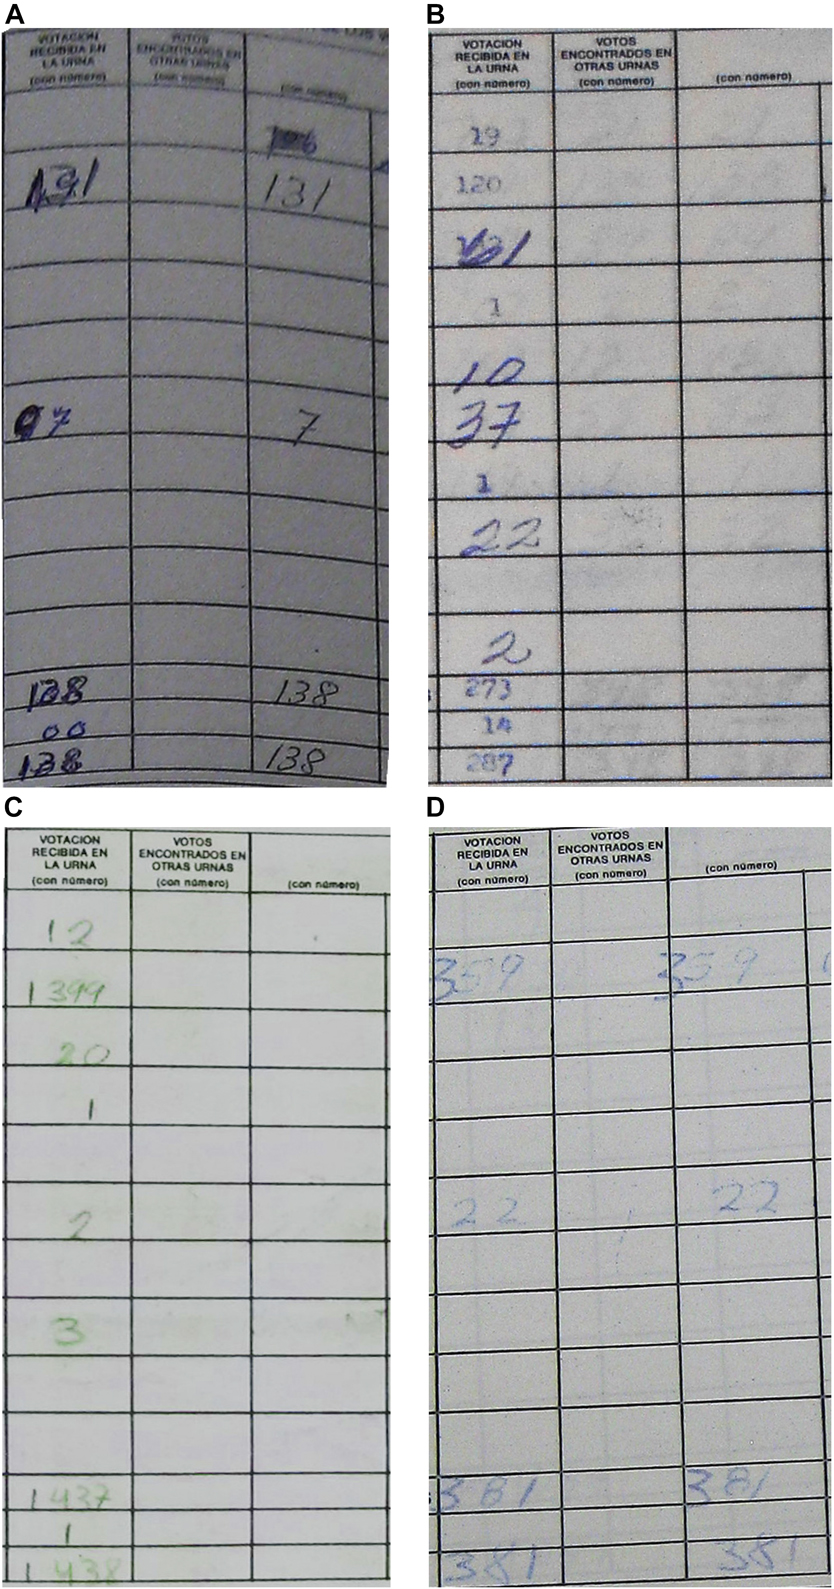 A
VOTACION RECIBIDA EN LA URNA (con número)
VOTOS ENCONTRADOS EN OTRAS URNAS (con número)
(con número)
131
7
138 138
00
138 138
B
VOTACION RECIBIDA EN LA URNA (con número)
VOTOS ENCONTRADOS EN OTRAS URNAS (con número)
(con número)
19
120
1
10
37
1
22
2
273
14
287
C
VOTACION RECIBIDA EN LA URNA (con número)
VOTOS ENCONTRADOS EN OTRAS URNAS (con número)
(con número)
12
1399
20
1
2
3
1437
1
1438
D
VOTACION RECIBIDA EN LA URNA (con número)
VOTOS ENCONTRADOS EN OTRAS URNAS (con número)
(con número)
359 359
22 22
381 381
381 381